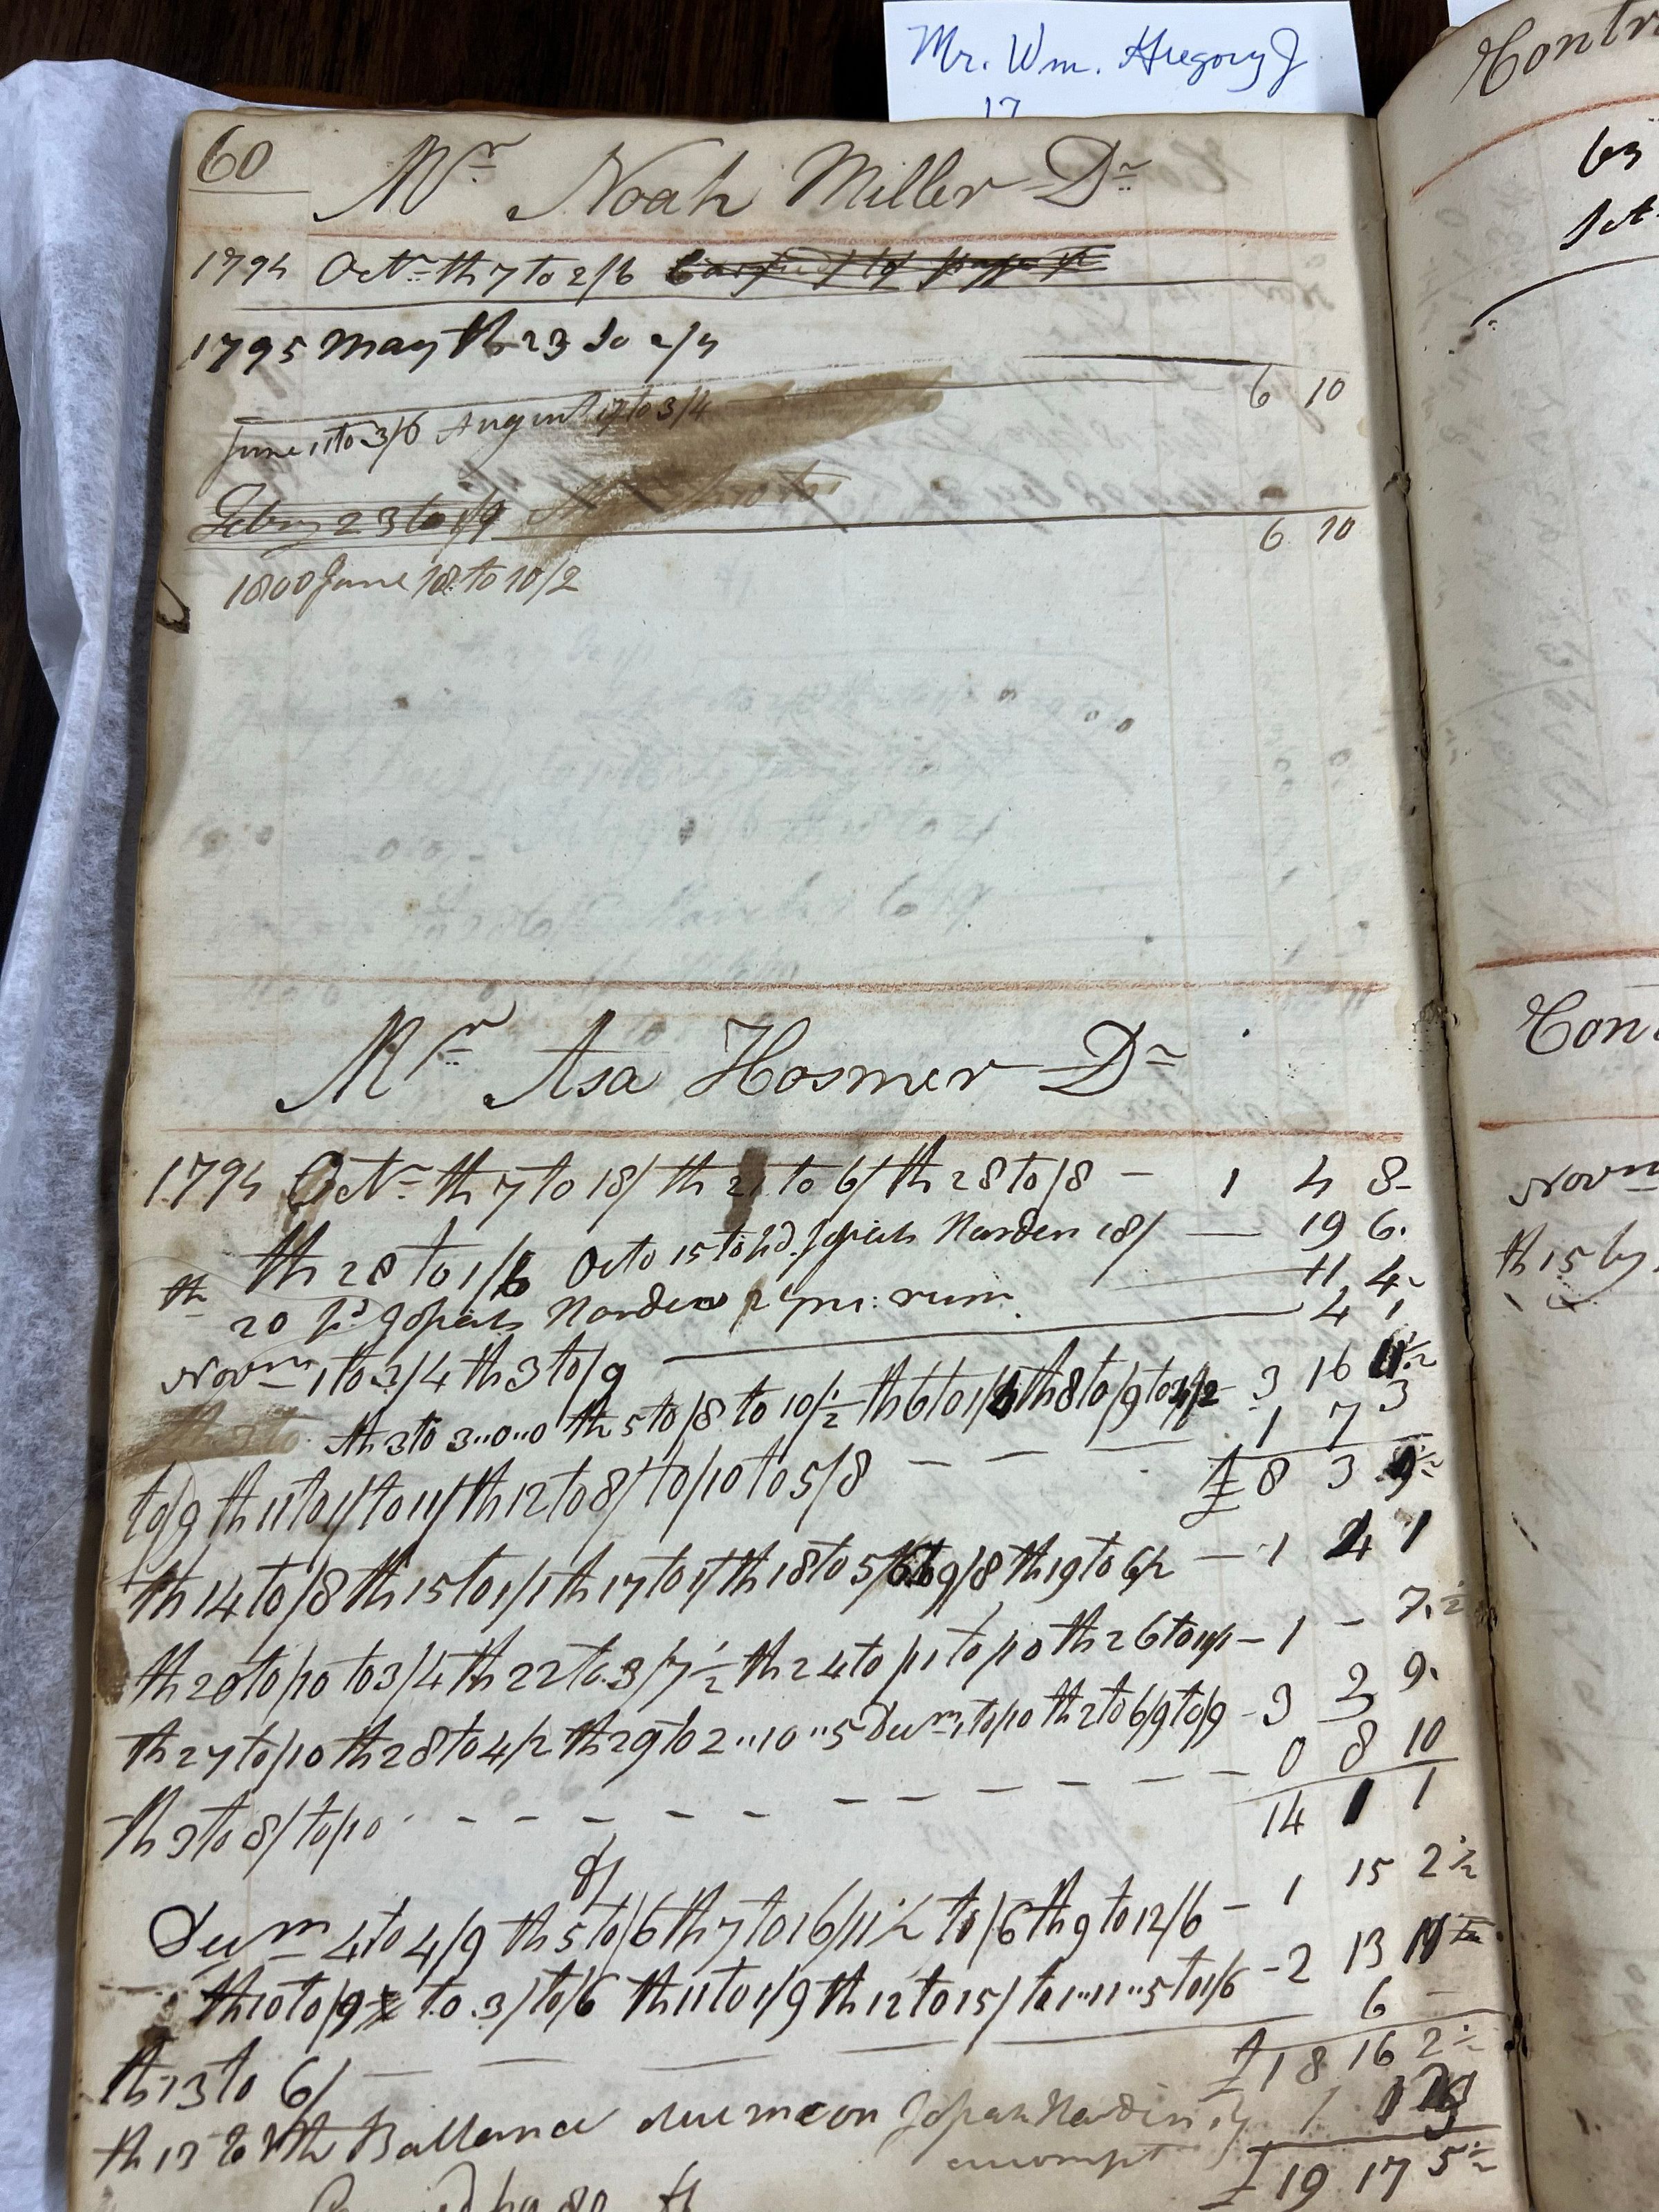 Mr. Wm. Gregory J
17
60 Mr Noah Miller Dr
1794 Octr th 7 to 2/6
1795 May th 23 to 2/4
6 10
June 11 to 3/6 August 17 to 3/4
Febry 23 to 1/9
6 10
1800 June 18 to 10/2
Mr Asa Hosmer Dr
1794 Octr th 7 to 18/ th 21 to 6/ th 28 to /8 - 1 4 8
th 28 to 1/6 Octo 15 to pd. Josiah Harden 18/ — 19 6
th 20 pd Josiah Harden rum 11 4
Novm 1 to 3/4 th 3 to /9 4 1
th 3 to 3..0..0 th 5 to /8 to 10/½ th 6 to 1/4 th 8 to /9 to 4/2 - 3 16 11½
to /9 th 11 to 1/ to 11/ th 12 to 8/ to /10 to 5/8 1 7 3
£ 8 3 9½
th 14 to /8 th 15 to 1/1 th 17 to 1/ th 18 to 5/6 to 9/8 th 19 to 6/2 - 1 4 1
th 20 to /10 to 3/4 th 22 to 3/7½ th 24 to /11 to /10 th 26 to - 1 - 7½
th 27 to /10 th 28 to 4/2 th 29 to 2..10..5 Decm 1 to /10 th 2 to 6/9 to /9 - 3 3 9
th 3 to 8/ to /10 0 8 10
14 1 1
Decm 4 to 4/9 th 5 to /6 th 7 to 16/11½ to /6 th 9 to 12/6 - 1 15 2½
th 10 to /9 to 3/ to /6 th 11 to 1/9 th 12 to 15/ to 1..11..5 to 1/6 - 2 13 11
th 13 to 6/ 6 -
£ 18 16 2½
th 13 to the Ballance due me on Josiah Harden
accompt
£ 19 17 5½
Contr
by
Oct
Con
Novm
th 15 by